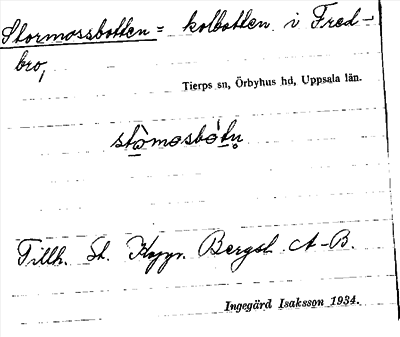 Stormossbotten = kolbotten i Fred-
bro,
Tierps sn, Örbyhus hd, Uppsala län.
Tillh. St. Koppr. Bergsl. A-B.
Ingegärd Isaksson 1934.